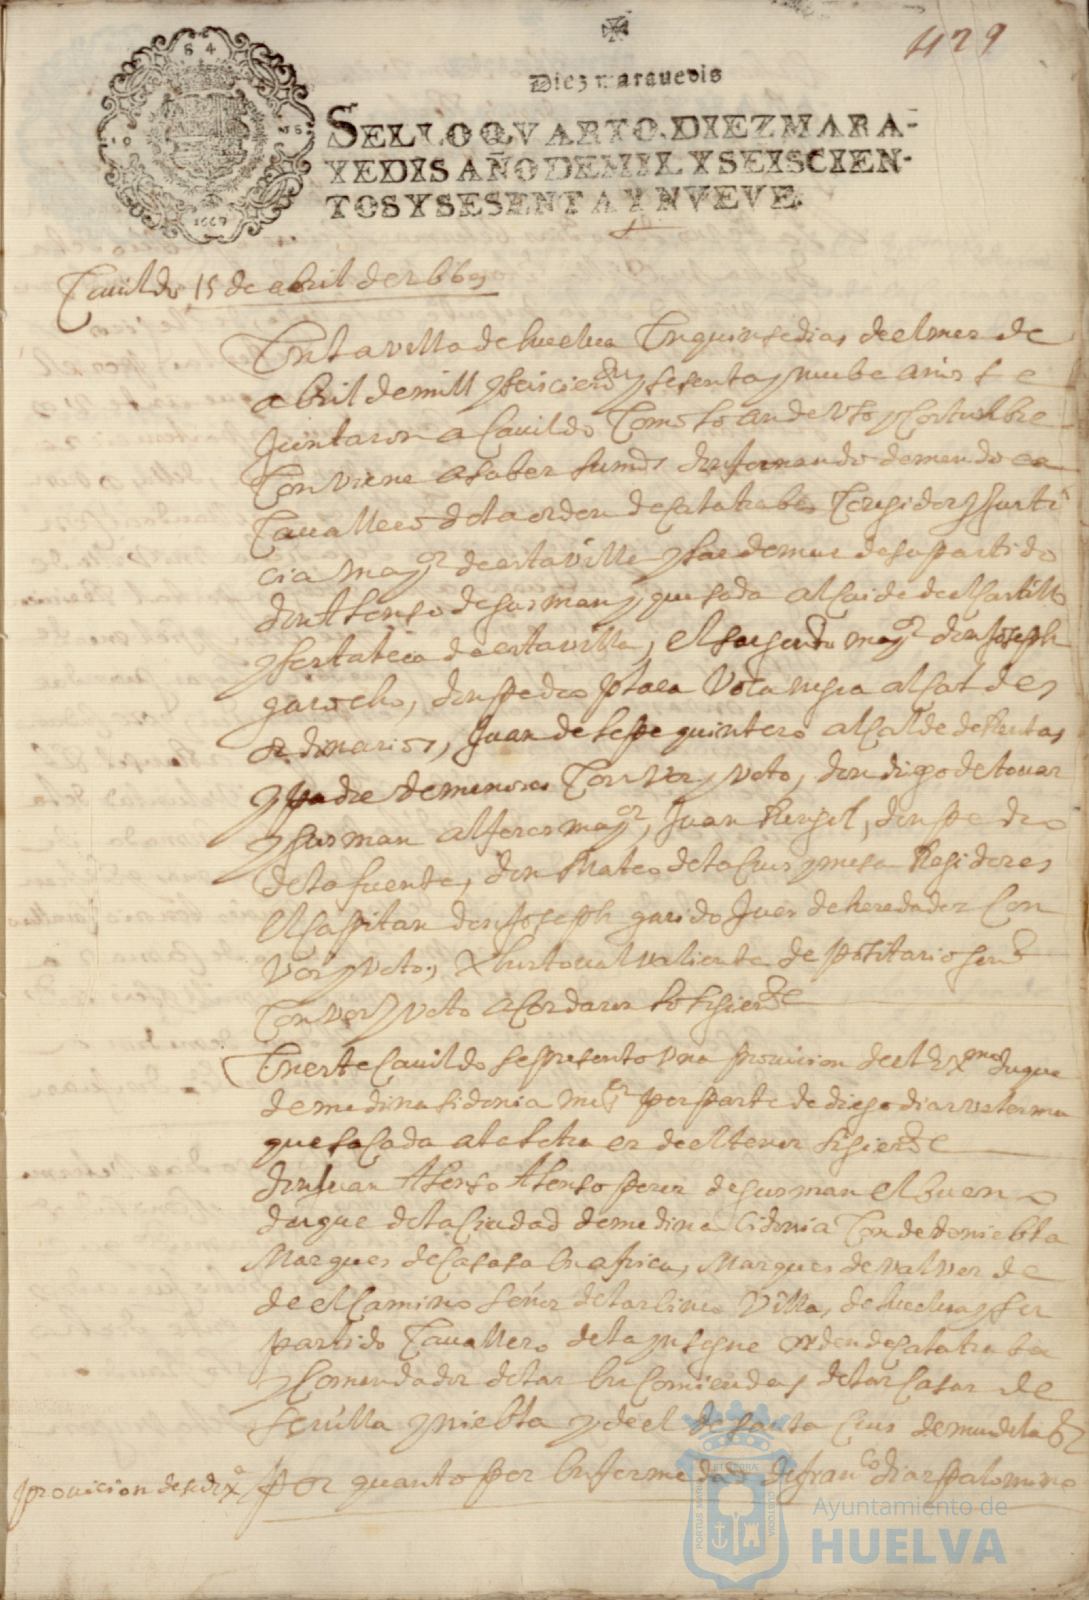 429
Diez maravedis
SELLO QVARTO, DIEZ MARA-
VEDIS AÑO DE MIL Y SEISCIEN-
TOS Y SESENTA Y NVEVE.
1669
Cauildo 15 de abril de 1669
En la villa de huelua En quinse dias de el mes de
abril de mill y seiscientos y sesenta y nuebe años se
juntaron a Cauildo Como lo an de Vso y Costumbre
Conviene a saber sumd don fernando de mendoca
Cauallero de la orden de Calatraba Coregidor y Justi
cia mayor de esta villa y las demas de su partido
don Alonso de Gusman y quesada alcaide de el Castillo
y fortaleca de esta villa, el sargento mayor don Joseph
garocho, don pedro plaça Vocanegra alcaldes
ordinarios, Juan de lepe quintero alcalde de Rentas
y padre de menores Con Vos y Voto, don diego de touar
y Gusman alferes mayor, Juan Rengel, don pedro
de la fuente, don Mateo de la Crus y mesa Regidores
El Capitan don Joseph garido Jues de heredades Con
Vos y Voto, Xpistoual valiente depositario Genl
Con Vos y Voto acordaron lo siguiente
En este Cauildo se presento Vna provicion de el Exmo duque
de medina sidonia mi Sr por parte de diego dias
que sacada a la letra es de el tenor siguiente
Don Juan Alonso Alonso peres de Gusman el bueno
duque de la Ciudad de medina Cidonia Conde de niebla
Marques de Casasa En africa, Marques de valverde
de el Camino Señor de las cinco Villas, de huelua y su
partido Cauallero de la ynsigne orden de Calatraba
y Comendador de las Encomiendas de las Casas de
seuilla y niebla y de el de Santa Crus de mudela &
provicion de su Exa
por quanto por Enfermedad de franco dias palomino
Ayuntamiento de
HUELVA